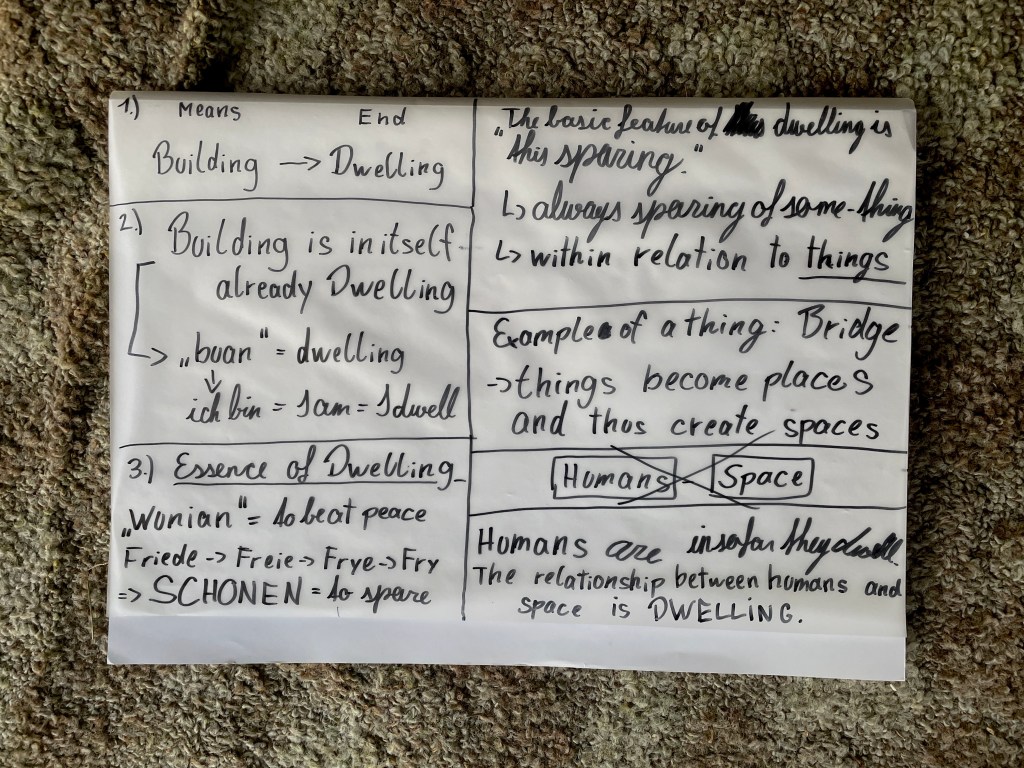 1.) Means End
Building -> Dwelling
2.) Building is in itself
already Dwelling
-> „buan" = dwelling
ich bin = I am = I dwell
3.) Essence of Dwelling
„Wunian" = to be at peace
Friede -> Freie -> Frye -> Fry
=> SCHONEN = to spare
„The basic feature of dwelling is
this sparing."
↳ always sparing of some-thing
↳ within relation to things
Example of a thing: Bridge
-> things become places
and thus create spaces
Humans - Space
Humans are insofar they dwell.
The relationship between humans and
space is DWELLING.